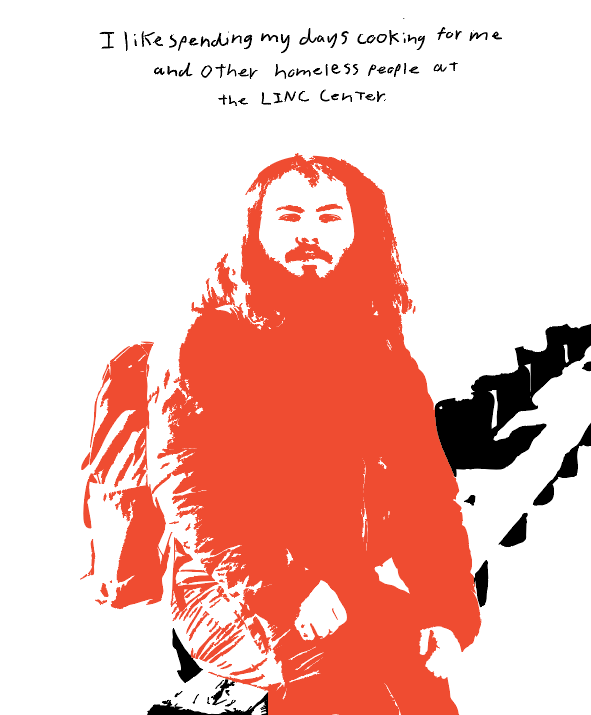 I like spending my days cooking for me
and other homeless people at
the LINC Center.